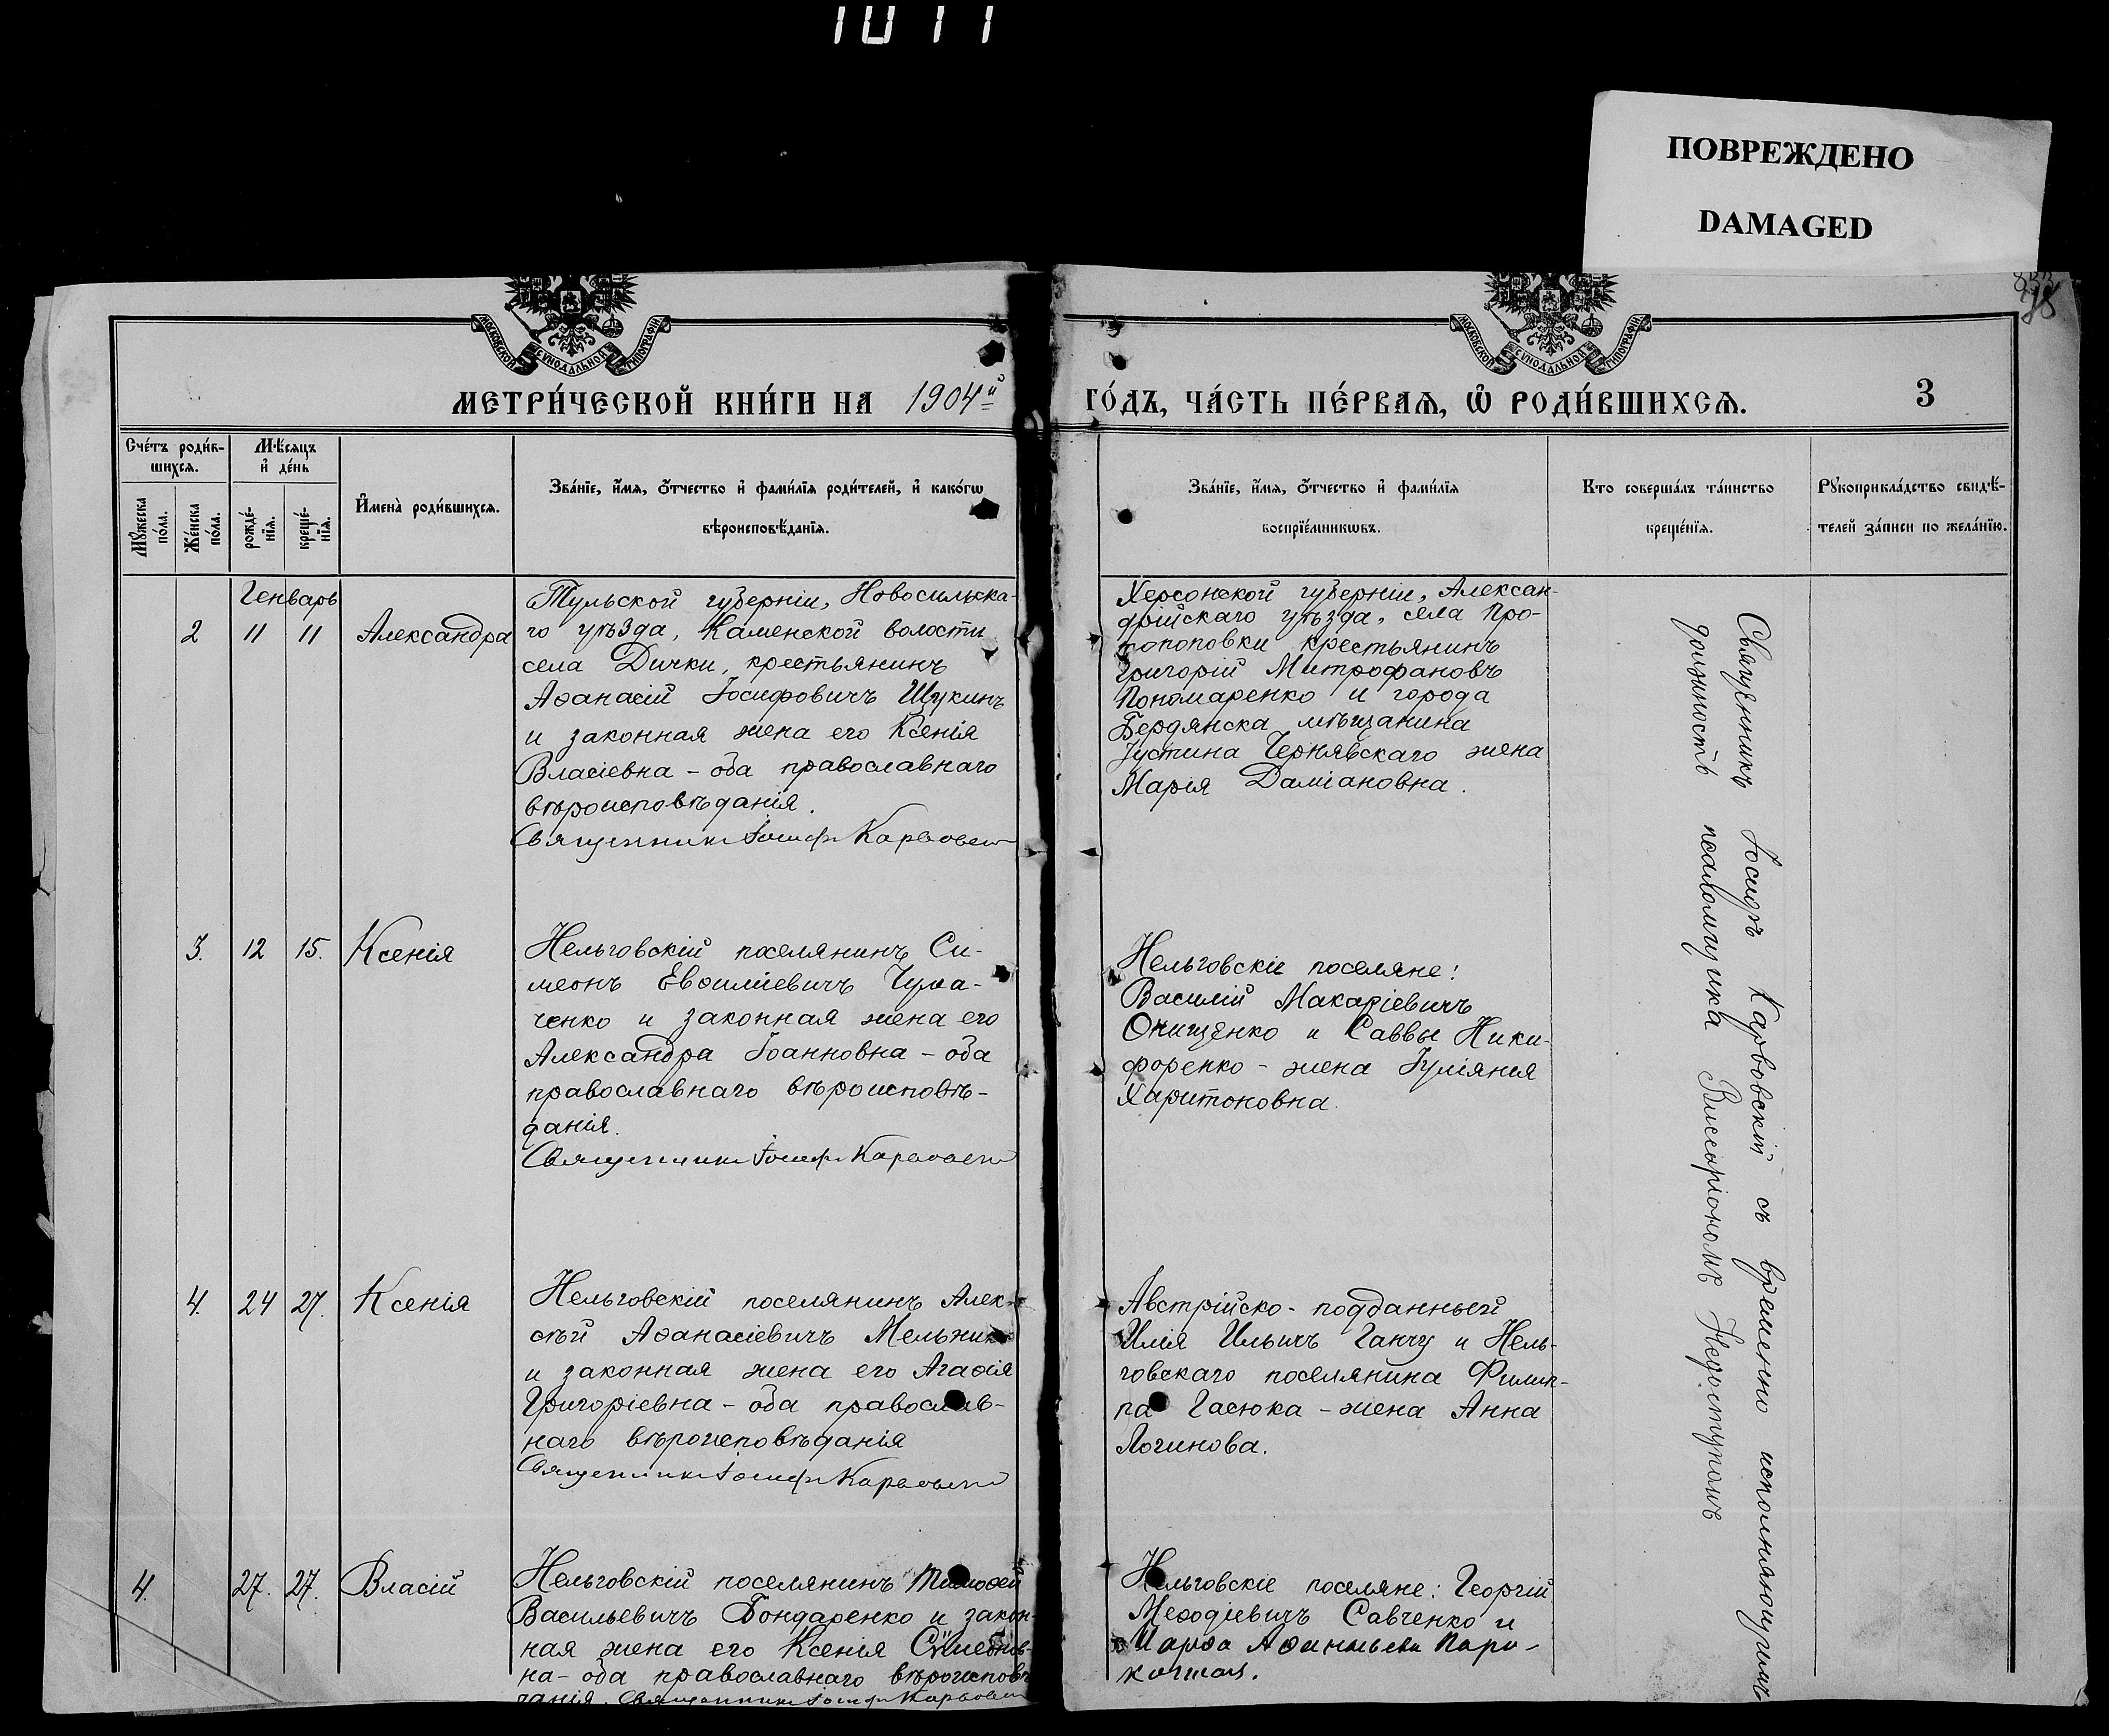 1011
ПОВРЕЖДЕНО
DAMAGED
МОСКОВСКОЙ СѴНОДАЛЬНОЙ ТИПОГРАФІИ
МОСКОВСКОЙ СѴНОДАЛЬНОЙ ТИПОГРАФІИ
МЕТРИ́ЧЕСКОЙ КНИ́ГИ НА 1904й ГО́ДЪ, ЧА́СТЬ ПЕ́РВАѦ, Ѡ҆ РОДИ́ВШИХСѦ.
3
Сче́тъ роди́в-
шихсѧ.
Мѣ́сѧцъ
и҆ де́нь
Мꙋ́жеска по́ла.
Же́нска по́ла.
рожде́-
нїѧ.
креще́-
нїѧ.
И҆мена̀ роди́вшихсѧ.
Зва́нїе, и҆́мѧ, ѻ҆́тчество и҆ фами́лїѧ роди́телей, и҆ како́гѡ
вѣроисповѣ́данїѧ.
Зва́нїе, и҆́мѧ, ѻ҆́тчество и҆ фами́лїѧ
воспрїе́мникѡвъ.
Кто соверша́лъ та́инство
креще́нїѧ.
Рꙋкоприкла́дство свидѣ́-
телей за́писи по жела́нїю.
Генварь
2 11 11 Александра
Тульской губерніи, Новосильска-
го уѣзда, Каменской волости
села Дички, крестьянинъ
Аѳанасій Іосифовичъ Щукинъ
и законная жена его Ксенія
Власіевна - оба православнаго
вѣроисповѣданія.
Священникъ Іосифъ Карвовскій
Херсонской губерніи, Алексан-
дрійскаго уѣзда, села Про-
топоповки крестьянинъ
Григорій Митрофановъ
Пономаренко и города
Бердянска мѣщанина
Іустина Чернявскаго жена
Марія Даміановна.
3. 12 15. Ксенія
Нельговскій поселянинъ Си-
меонъ Евѳиміевичъ Чума-
ченко и законная жена его
Александра Іоанновна - оба
православнаго вѣроисповѣ-
данія.
Священникъ Іосифъ Карвовскій
Нельговскіе поселяне:
Василій Макаріевичъ
Онищенко и Саввы Ники-
форенко - жена Іуліанія
Харитоновна.
4. 24 27. Ксенія
Нельговскій поселянинъ Алек-
сѣй Аѳанасіевичъ Мельник
и законная жена его Агаѳія
Григоріевна - оба православ-
наго вѣроисповѣданія
Священникъ Іосифъ Карвовскій
Австрійско-подданный
Илія Ильичъ Ганчу и Нель-
говскаго поселянина Филип-
па Гасюка - жена Анна
Логинова.
4. 27. 27. Власій
Нельговскій поселянинъ Тимоѳей
Васильевичъ Бондаренко и закон-
ная жена его Ксенія Симеонов-
на - оба православнаго вѣроисповѣ-
данія. Священникъ Іосифъ Карвовскій
Нельговскіе поселяне: Георгій
Меѳодіевичъ Савченко и
Марѳа Аѳанасьева
Священникъ Іосифъ Карвовскій съ временно исполняющимъ
должность псаломщика Виссаріономъ Недоступомъ